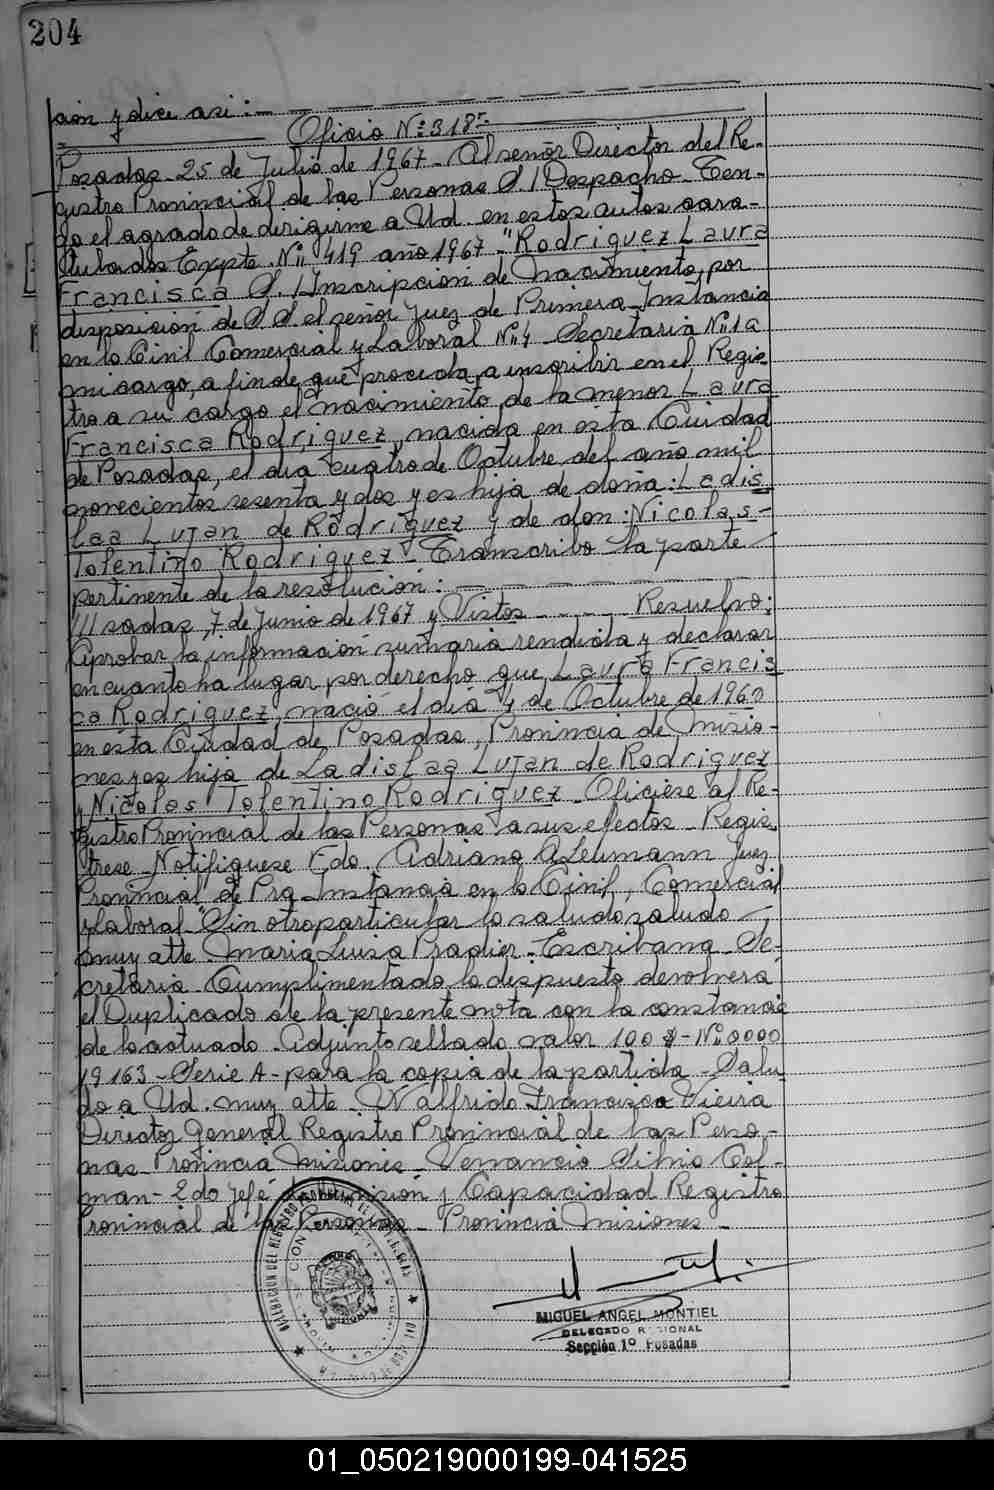 204
ción y dice así :—
Oficio Nº 318-
Posadas 25 de Julio de 1967 - Al señor Director del Re-
gistro Provincial de las Personas S / Despacho - Ten-
go el agrado de dirigirme a Ud. en estos autos cara-
tulados Expte. Nº 419 año 1967 - "Rodriguez Laura
Francisca S. / Inscripción de Nacimiento, por
disposición de S S el señor Juez de Primera Instancia
en lo Civil Comercial y Laboral Nº 4 - Secretaria Nº 1 a
mi cargo, a fin de que proceda a inscribir en el Regis-
tro a su cargo el nacimiento de la menor Laura
Francisca Rodriguez, nacida en esta Cuidad
de Posadas, el día cuatro de Octubre del año mil
novecientos sesenta y dos y es hija de doña: Ladis
laa Lujan de Rodriguez y de don: Nicolas-
Tolentino Rodriguez - Transcribo la parte
pertinente de la resolución: —
///sadas, 7 de Junio de 1967 y Vistos - - - Resuelvo:
Aprobar la información sumaria rendida y declarar
en cuanto ha lugar por derecho que Laura Francis
ca Rodriguez, nació el día 4 de Octubre de 196
en esta Ciudad de Posadas, Provincia de Misio-
nes y es hija de Ladislaa Lujan de Rodriguez
y Nicolas Tolentino Rodriguez - Oficiese al Re-
gistro Provincial de las Personas a sus efectos - Regis
trese - Notifiquese Fdo. Adriano A Lehmann Juez
Provincial de Pra Instancia en lo Civil, Comercial
y Laboral" Sin otro particular lo saludo saludo -
muy atte Maria Luisa Pradier - Escribana - Se-
cretaria - Cumplimentado lo despuesto devolverá
el Duplicado de la presente nota con la constancia
de lo actuado - Adjunto sellado valor 100 $ - Nº 0000
19163 - Serie A - para la copia de la partida - Salu-
do a Ud. muy atte. Walfrido Francisco Vieira
Director General Registro Provincial de las Perso-
nas Provincia Misiones - Venancio Silvio Col-
man - 2do Jefe de División y Capacidad Registro
Provincial de las Personas - Provincia Misiones -
MIGUEL ANGEL MONTIEL
DELEGADO REGIONAL
Sección 1º Posadas
01_050219000199-041525